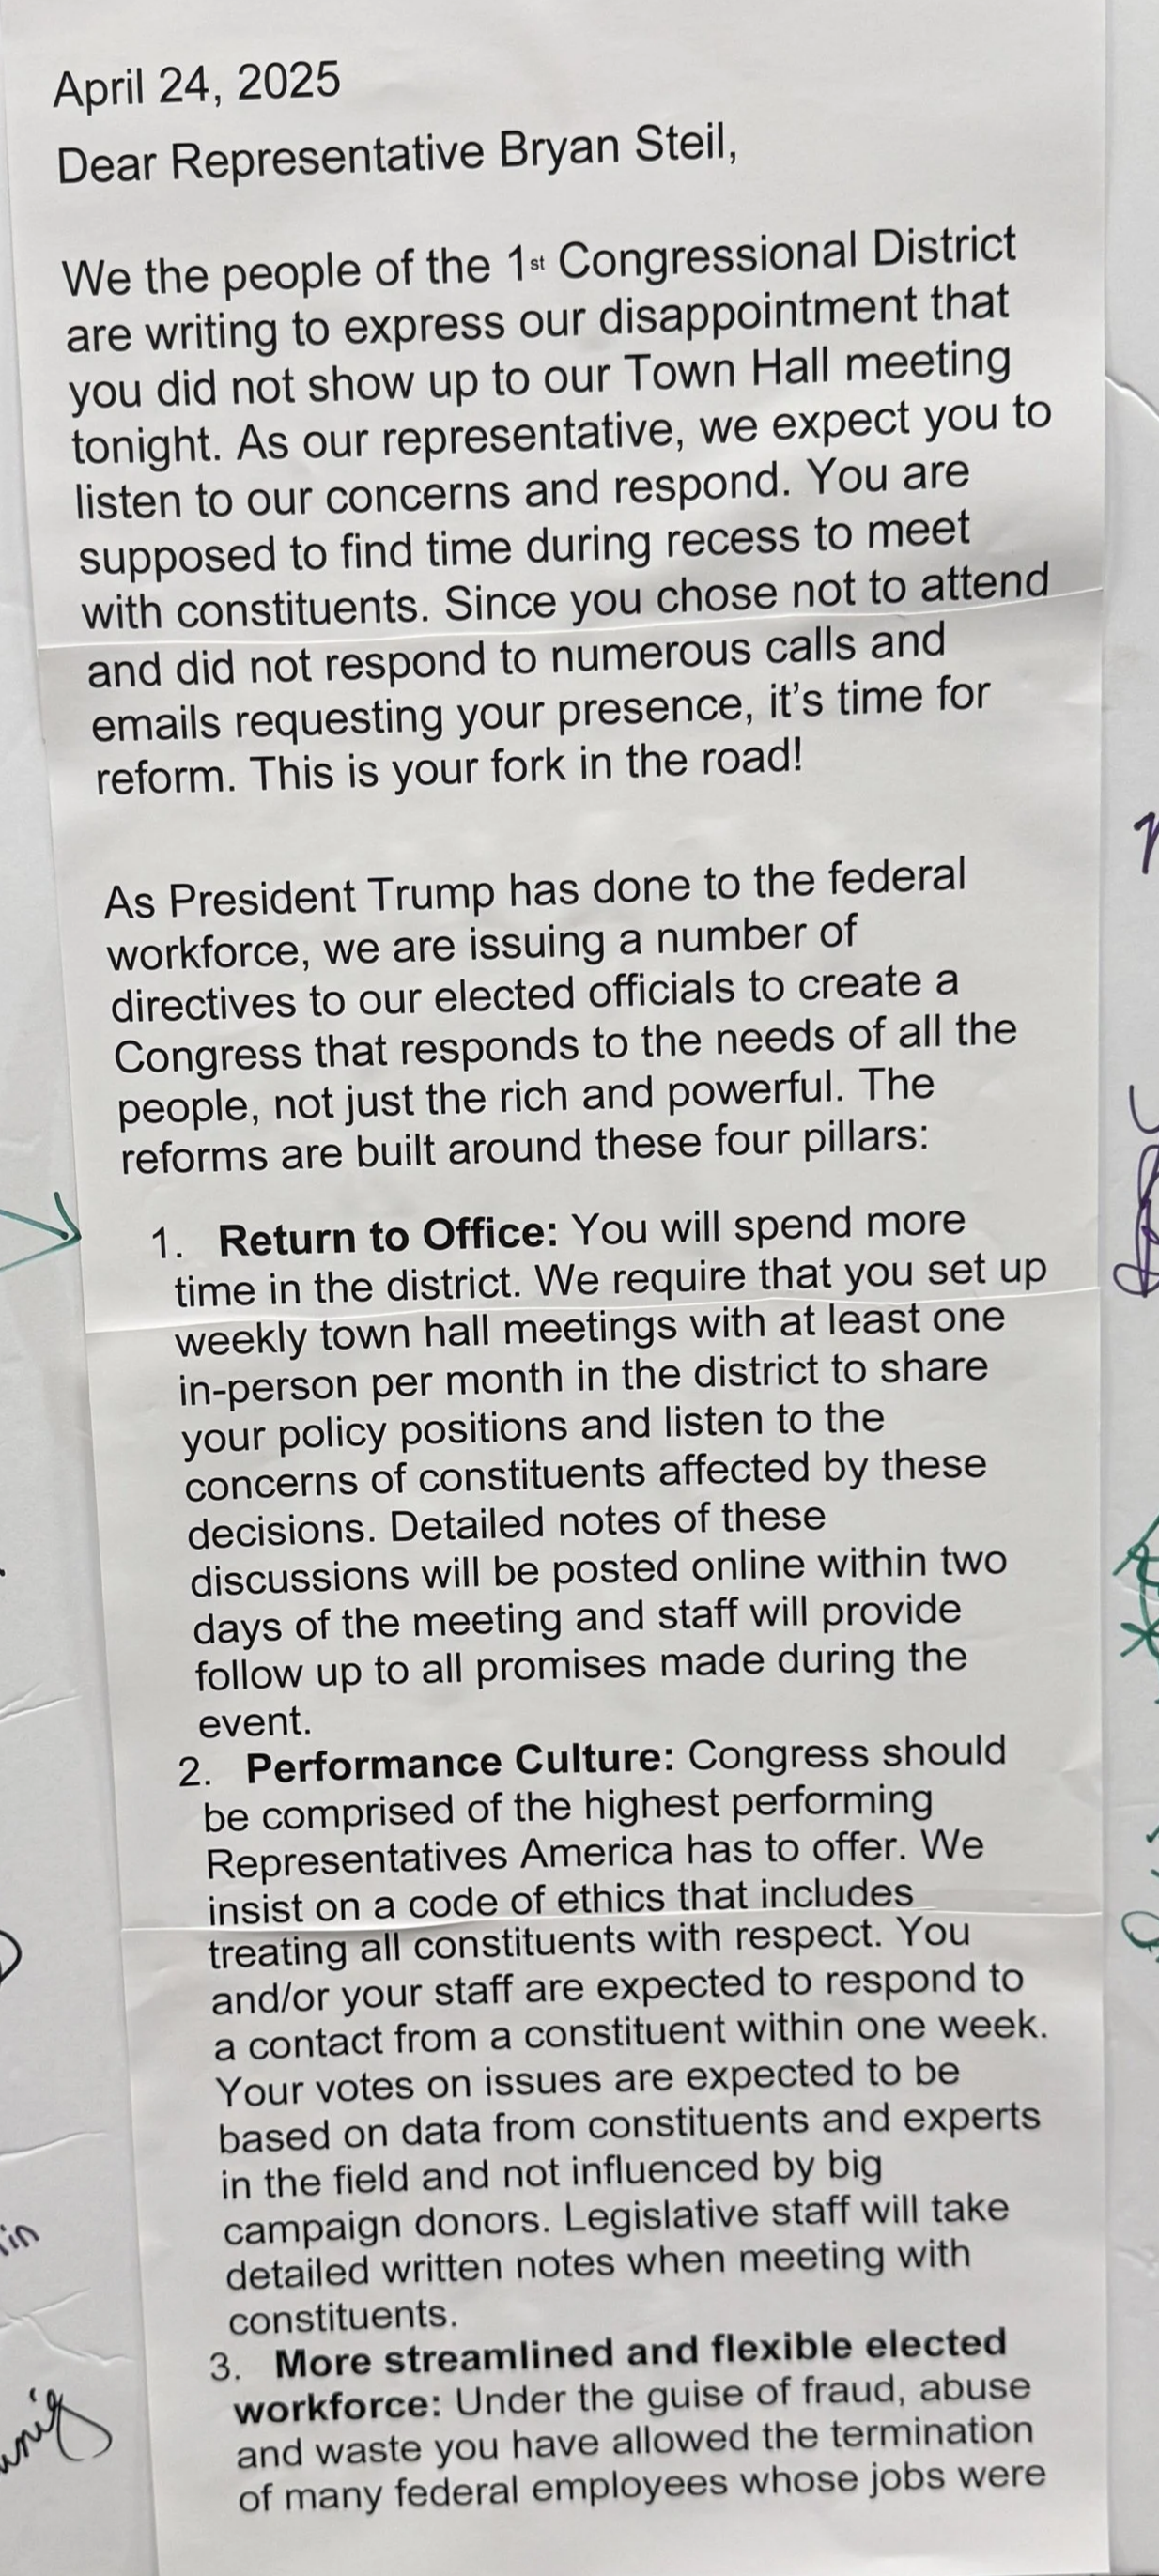 April 24, 2025
Dear Representative Bryan Steil,
We the people of the 1st Congressional District
are writing to express our disappointment that
you did not show up to our Town Hall meeting
tonight. As our representative, we expect you to
listen to our concerns and respond. You are
supposed to find time during recess to meet
with constituents. Since you chose not to attend
and did not respond to numerous calls and
emails requesting your presence, it's time for
reform. This is your fork in the road!
As President Trump has done to the federal
workforce, we are issuing a number of
directives to our elected officials to create a
Congress that responds to the needs of all the
people, not just the rich and powerful. The
reforms are built around these four pillars:
1. Return to Office: You will spend more
time in the district. We require that you set up
weekly town hall meetings with at least one
in-person per month in the district to share
your policy positions and listen to the
concerns of constituents affected by these
decisions. Detailed notes of these
discussions will be posted online within two
days of the meeting and staff will provide
follow up to all promises made during the
event.
2. Performance Culture: Congress should
be comprised of the highest performing
Representatives America has to offer. We
insist on a code of ethics that includes
treating all constituents with respect. You
and/or your staff are expected to respond to
a contact from a constituent within one week.
Your votes on issues are expected to be
based on data from constituents and experts
in the field and not influenced by big
campaign donors. Legislative staff will take
detailed written notes when meeting with
constituents.
3. More streamlined and flexible elected
workforce: Under the guise of fraud, abuse
and waste you have allowed the termination
of many federal employees whose jobs were